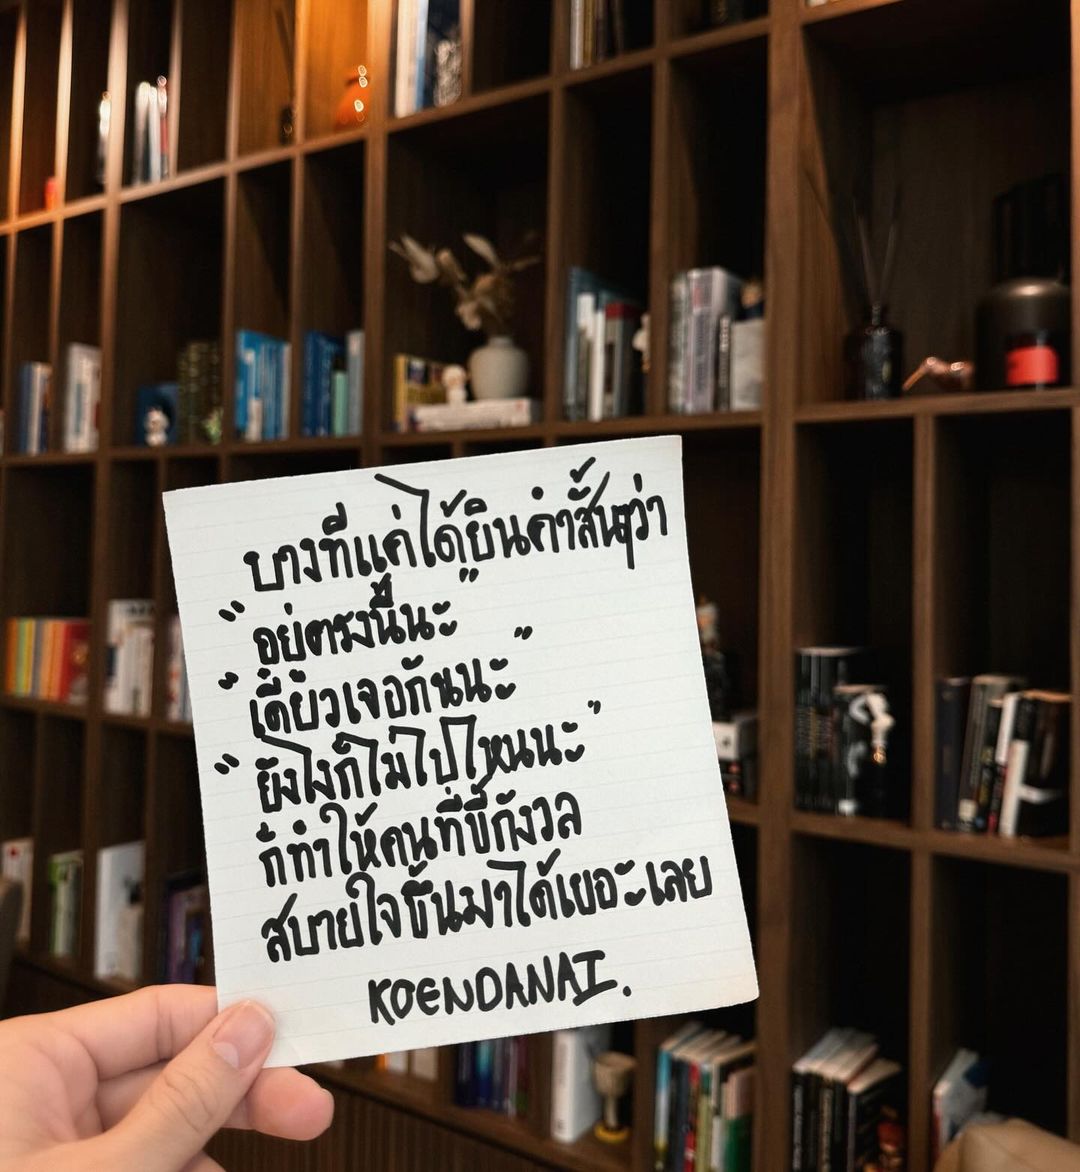 บางทีแค่ได้ยินคำสั้นๆว่า
"อยู่ตรงนี้นะ"
"เดี๋ยวเจอกันนะ"
"ยังไงก็ไม่ไปไหนนะ"
ก็ทำให้คนที่ขี้กังวล
สบายใจขึ้นมาได้เยอะเลย
KOENDANAI.